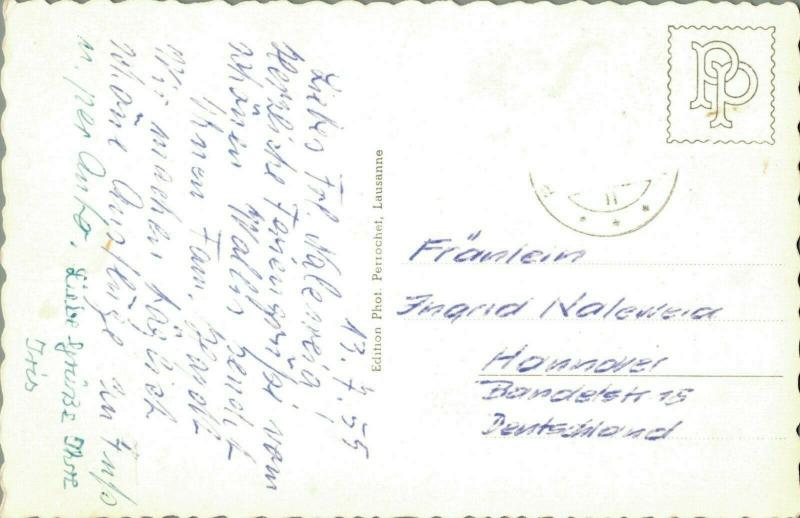 13.7.55
Liebes Frl. Naleweia!
Herzliche Feriengrüße vom
schönen Wallis sendet
Ihnen Fam.
Wir machen täglich
schöne Ausflüge zu Fuß
u. per Auto. Liebe Grüße Ihre
Iris
Edition Phot. Perrochet, Lausanne
PP
Fräulein
Ingrid Naleweia
Hannover
Bandelstr. 15
Deutschland